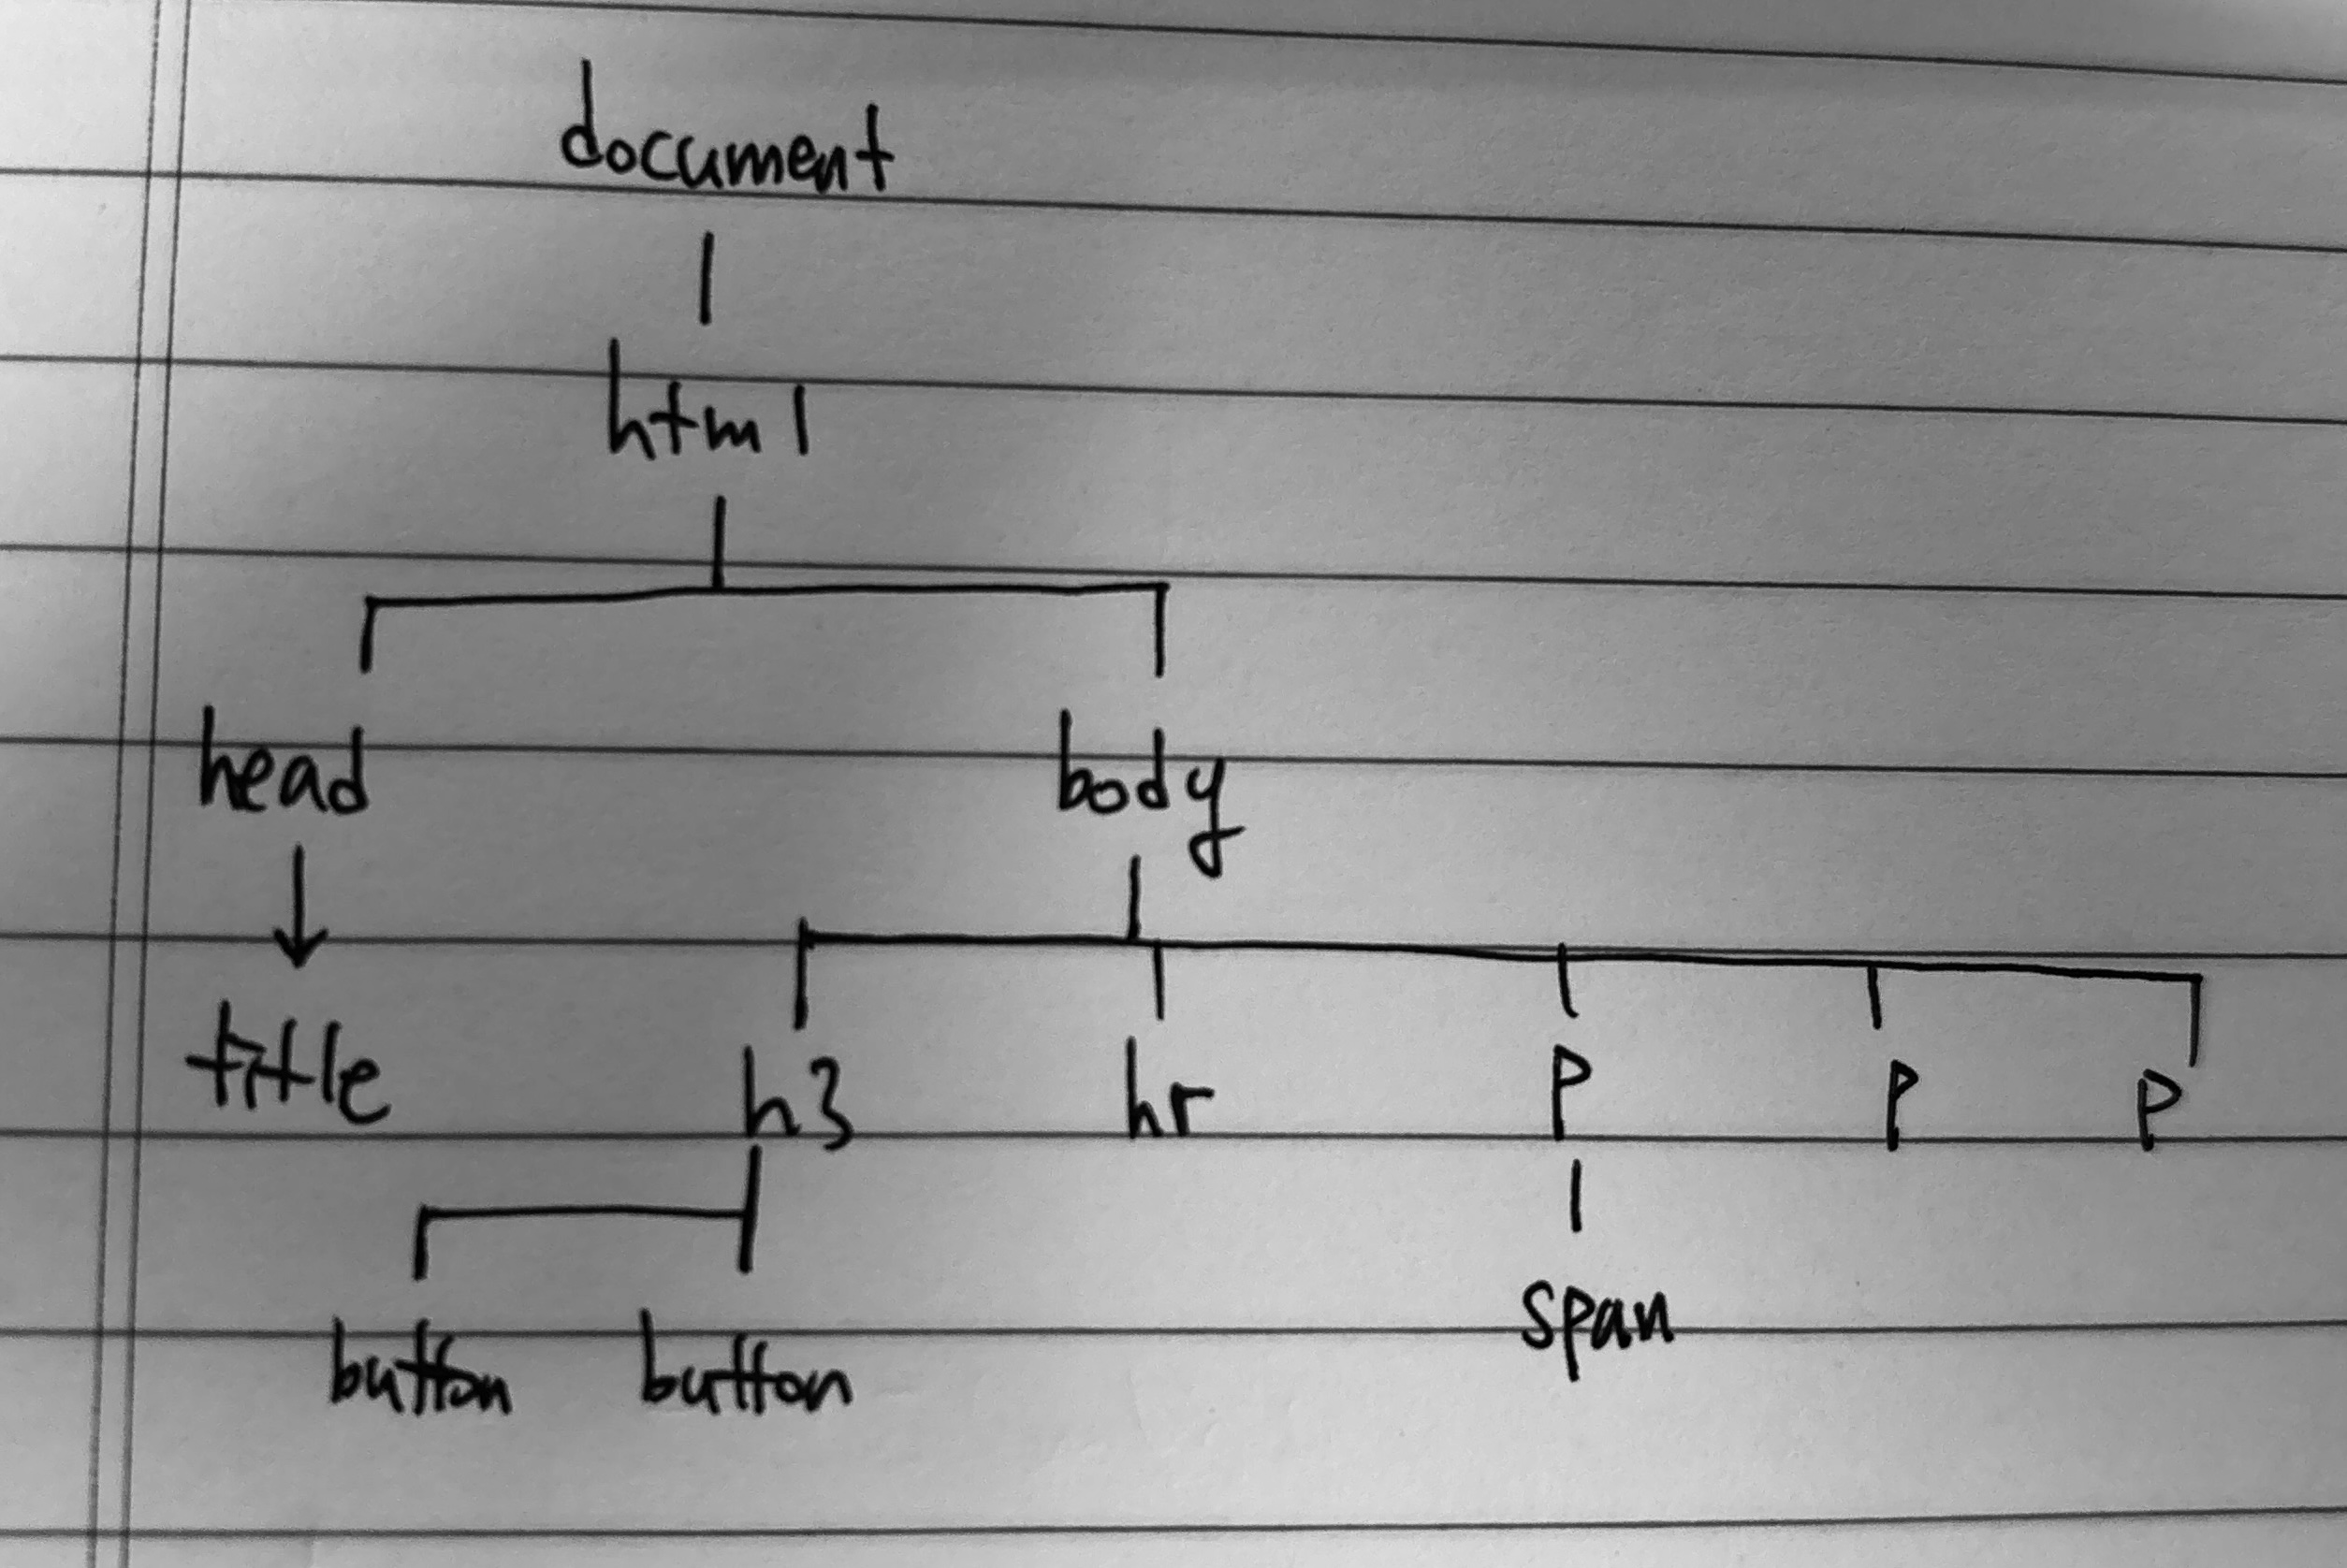 document
html
head body
title h3 hr p p p
button button span